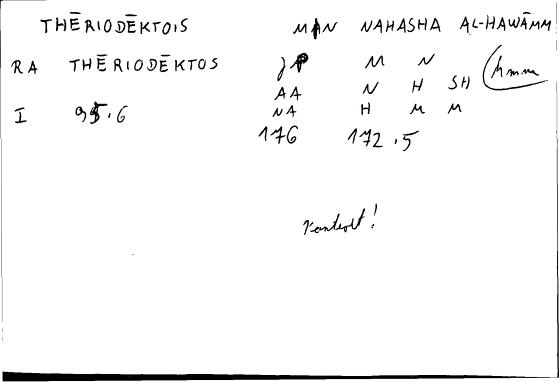 THĒRIODĒKTOIS MAN NAHASHA AL-HAWĀMM
RA THĒRIODĒKTOS M N
AA N H SH
I 95.6 NA H M M
176 172.5